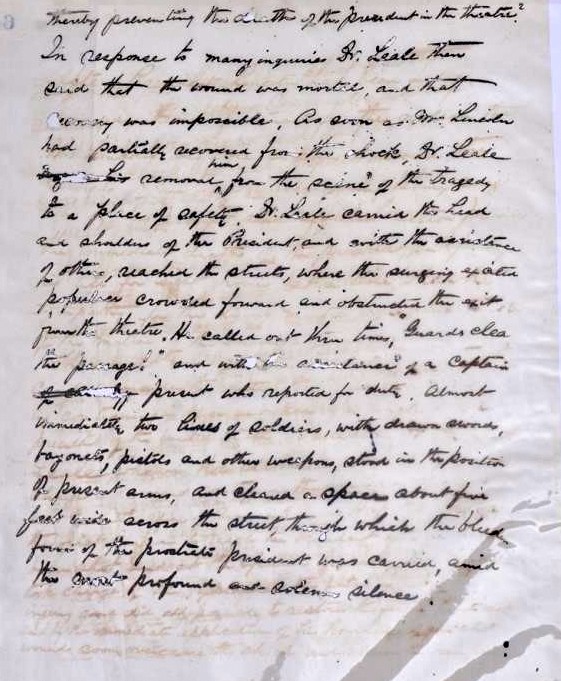 thereby preventing the death of the President in the theatre?
In response to many inquiries Dr. Leale then
said that the wound was mortal, and that
recovery was impossible. As soon as Mr. Lincoln
had partially recovered from the shock, Dr. Leale
removed him from the scene of the tragedy
to a place of safety. Dr. Leale carried the head
and shoulders of the President, and with the assistance
of others, reached the streets, where the surging excited
populace crowded forward and obstructed the exit
from the theatre. He called out three times, "Guards clea
the passage!" and with the assistance of a Captain
present who reported for duty. Almost
immediately two lines of soldiers, with drawn swords,
bayonets, pistols and other weapons, stood in the position
of present arms, and cleared a space about five
feet wide across the street, through which the bleed
form of the prostrate President was carried, amid
the most profound and solemn silence.